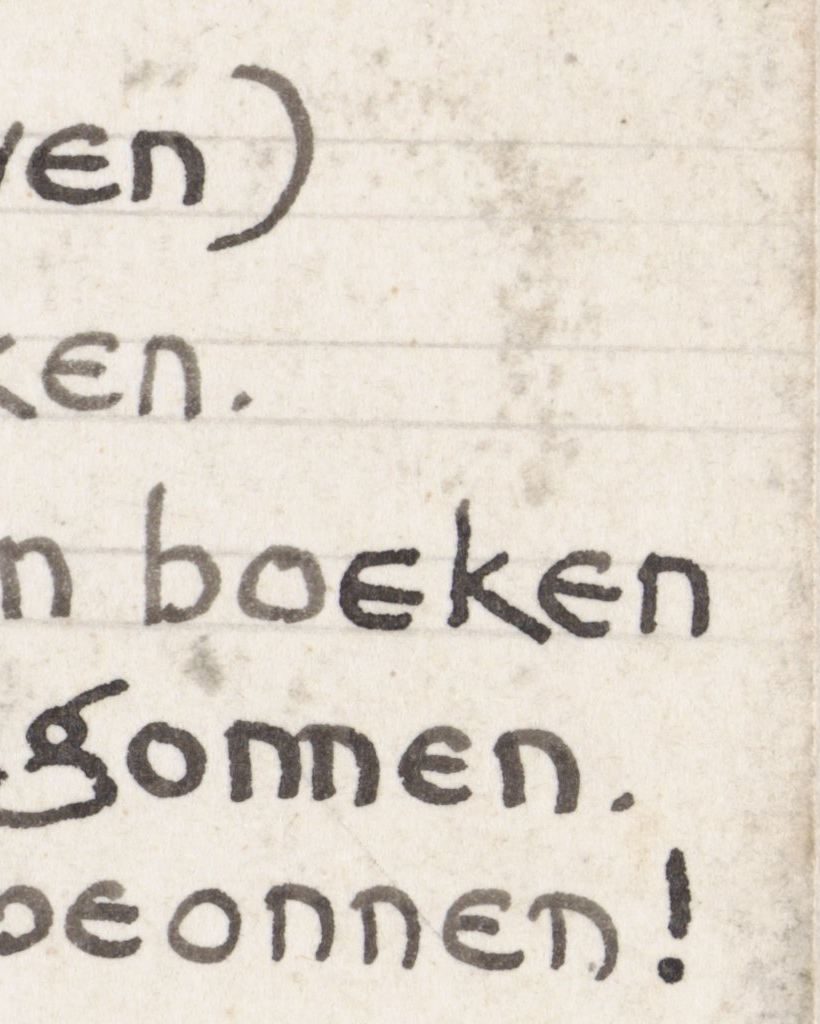 ven)
ken.
n boeken
gonnen.
beonnen!